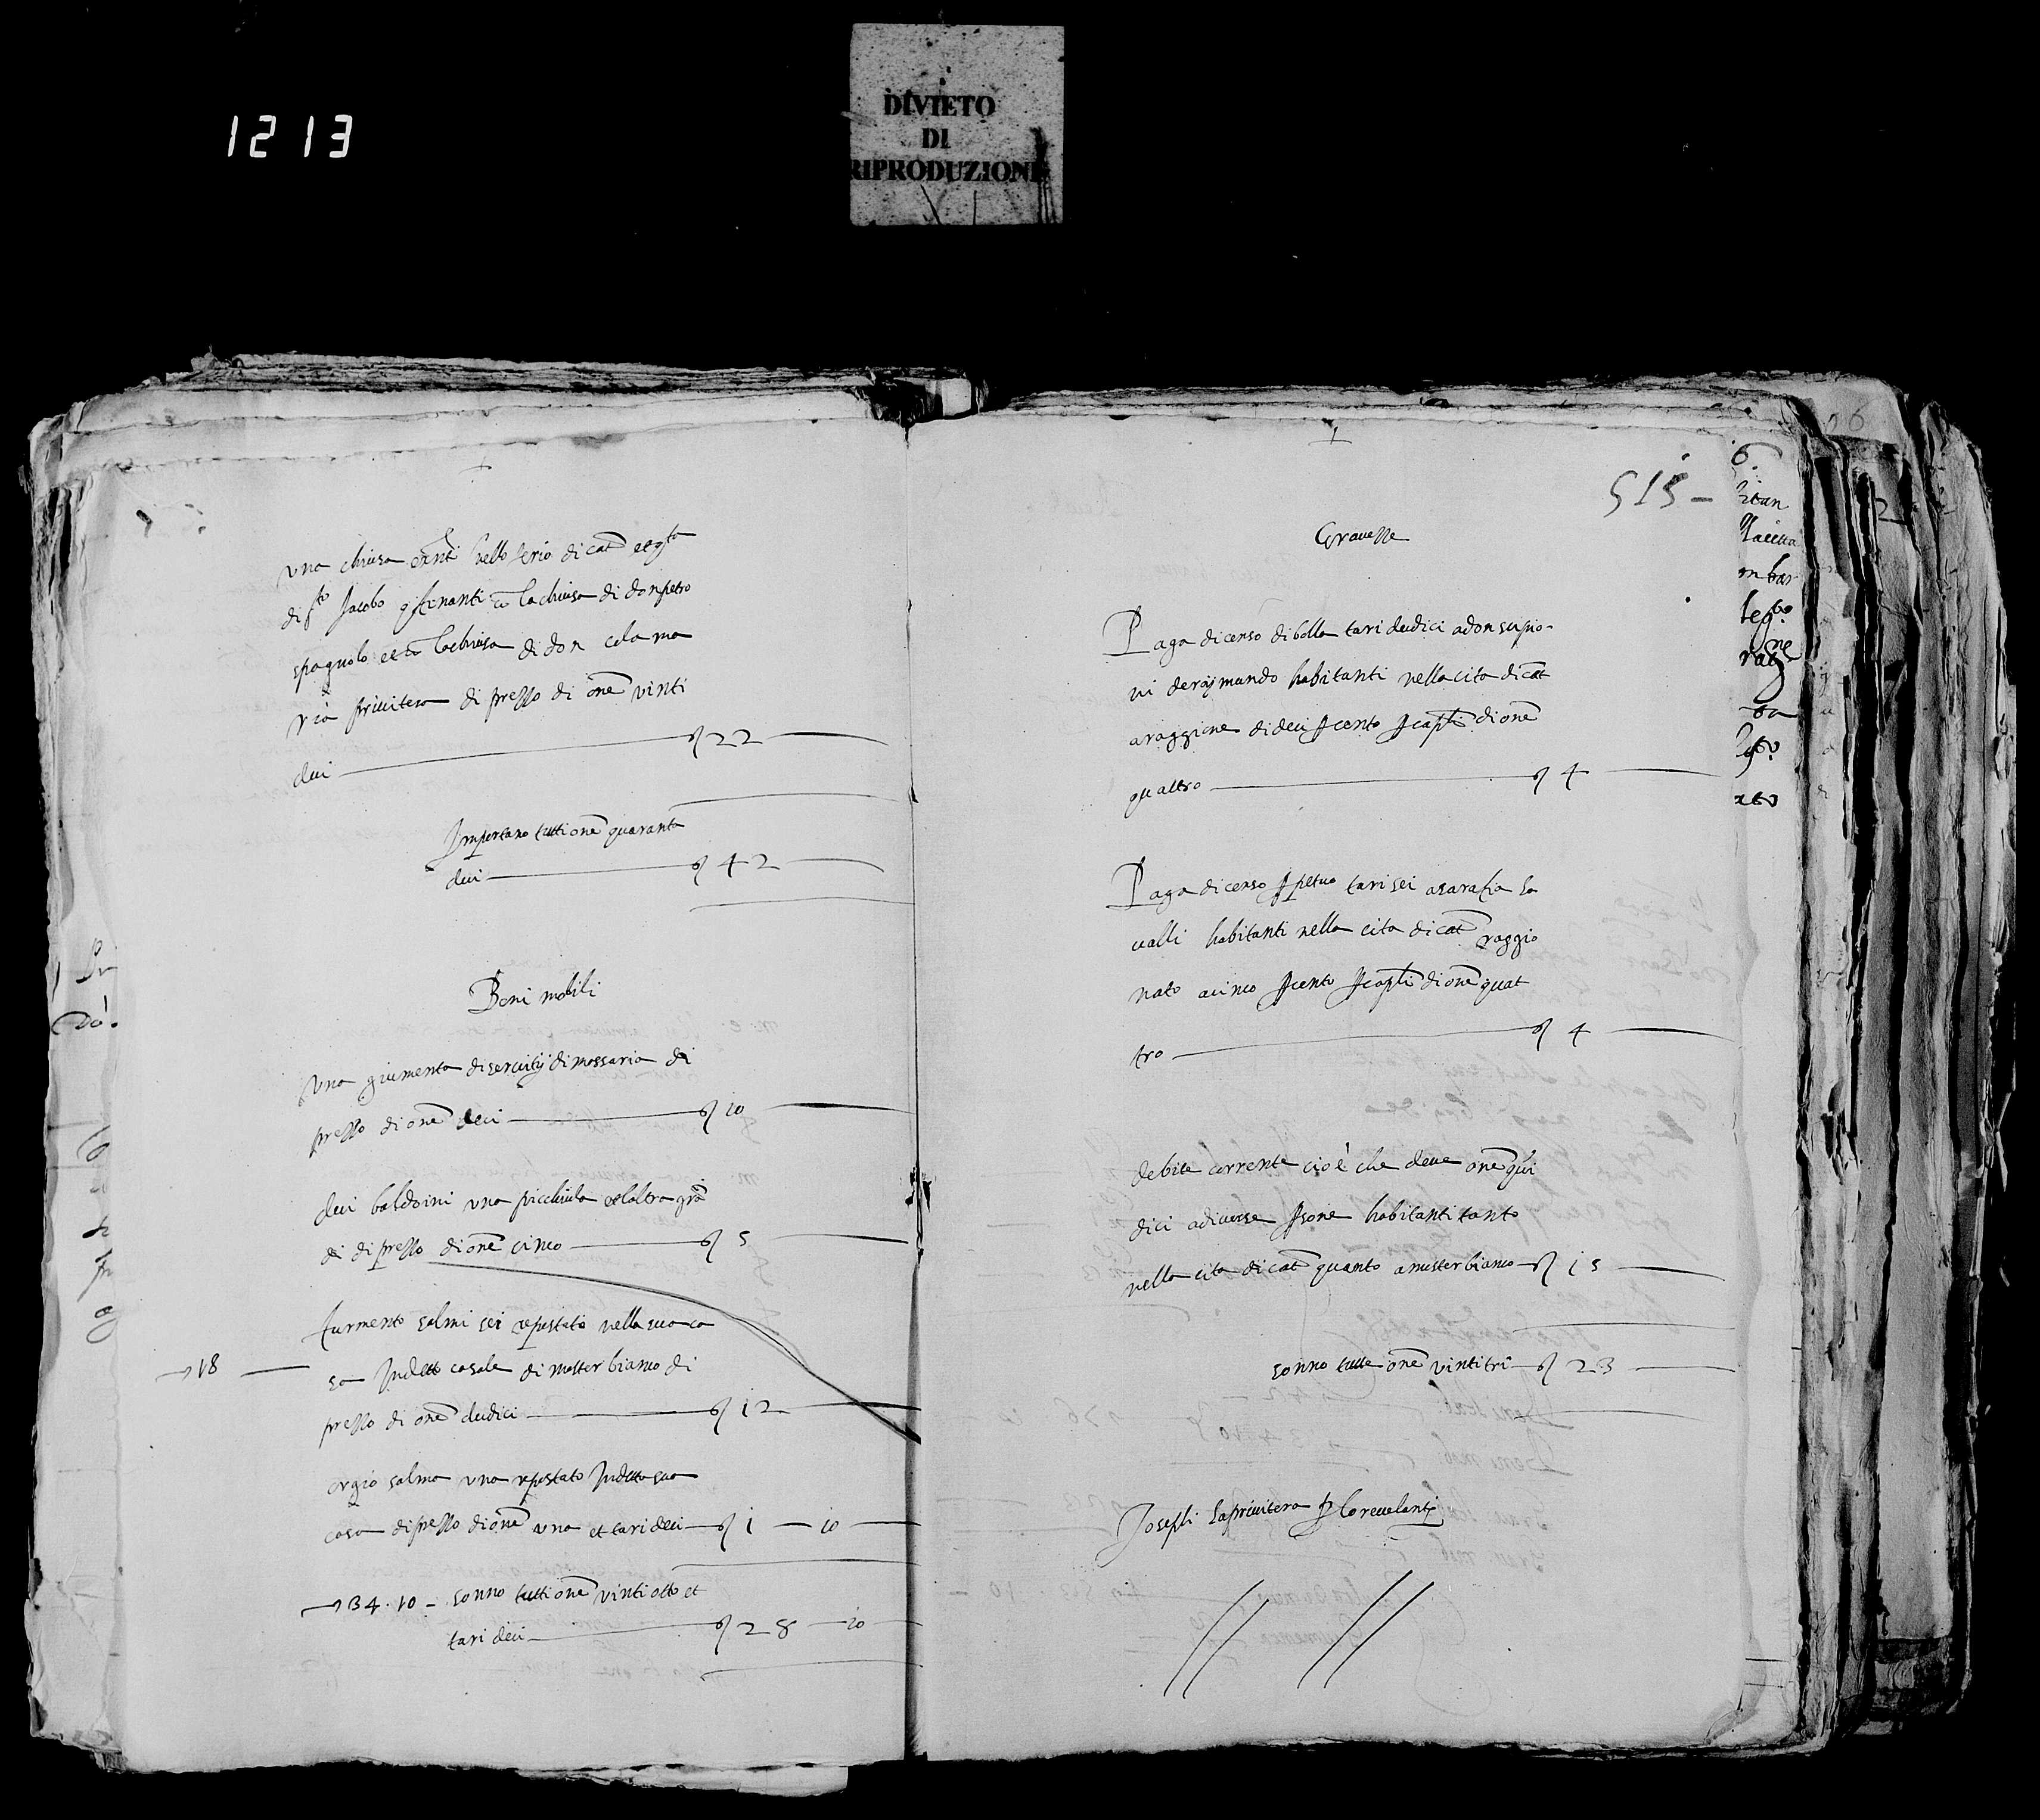 1213
DIVIETO
DI
RIPRODUZIONE
una chiusa nello di cat.
di s.to Jacobo cō la chiusa di don petro
spagnolo et cō la chiusa di don cola ma
ria privitera di prezzo di onc̄ vinti
dui 22
Importano tutti onc̄ quaranta
dui 42
Boni mobili
Una giumenta di servitij di massaria di
prezzo di onc̄ deci 10
dui baldoini una picchiula et laltra grā
di di prezzo di onc̄ cinco 5
furmento salmi sei repostato nella sua ca
18
sa In detto casale di mister bianco di
prezzo di onc̄ dudici 12
orgio salma una repostato In detta sua
casa di prezzo di onc̄ una et tari deci 1 — 10
34.10 – sonno tutti onc̄ vinti otto et
tari deci 28 — 10
515 –
Gravezze
Paga di censo di bolla tari dudici a don scipio-
ni de raijmundo habitanti nella cita di cat
a raggione di deci p cento p capli di onc̄
quattro 4
Paga di censo ppetuo tari sei a sarafia la
valli habitanti nella cita di cat raggio
nato a cinco p cento p capli di onc̄ quat
tro 4
debite corrente cioè che deve onc̄ qui
dici a diverse psone habitanti tanto
nella cita di cat quanto a mister bianco 15
sonno tutte onc̄ vinti tri 23
Joseph la privitera p lo revelante